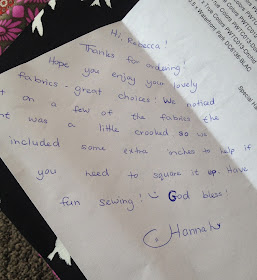 Hi, Rebecca!
Thanks for ordering!
Hope you enjoy your lovely
fabrics - great choices! We noticed
on a few of the fabrics the
was a little crooked so we
included some extra inches to help if
you need to square it up. Have
fun sewing! God bless!
Hannah